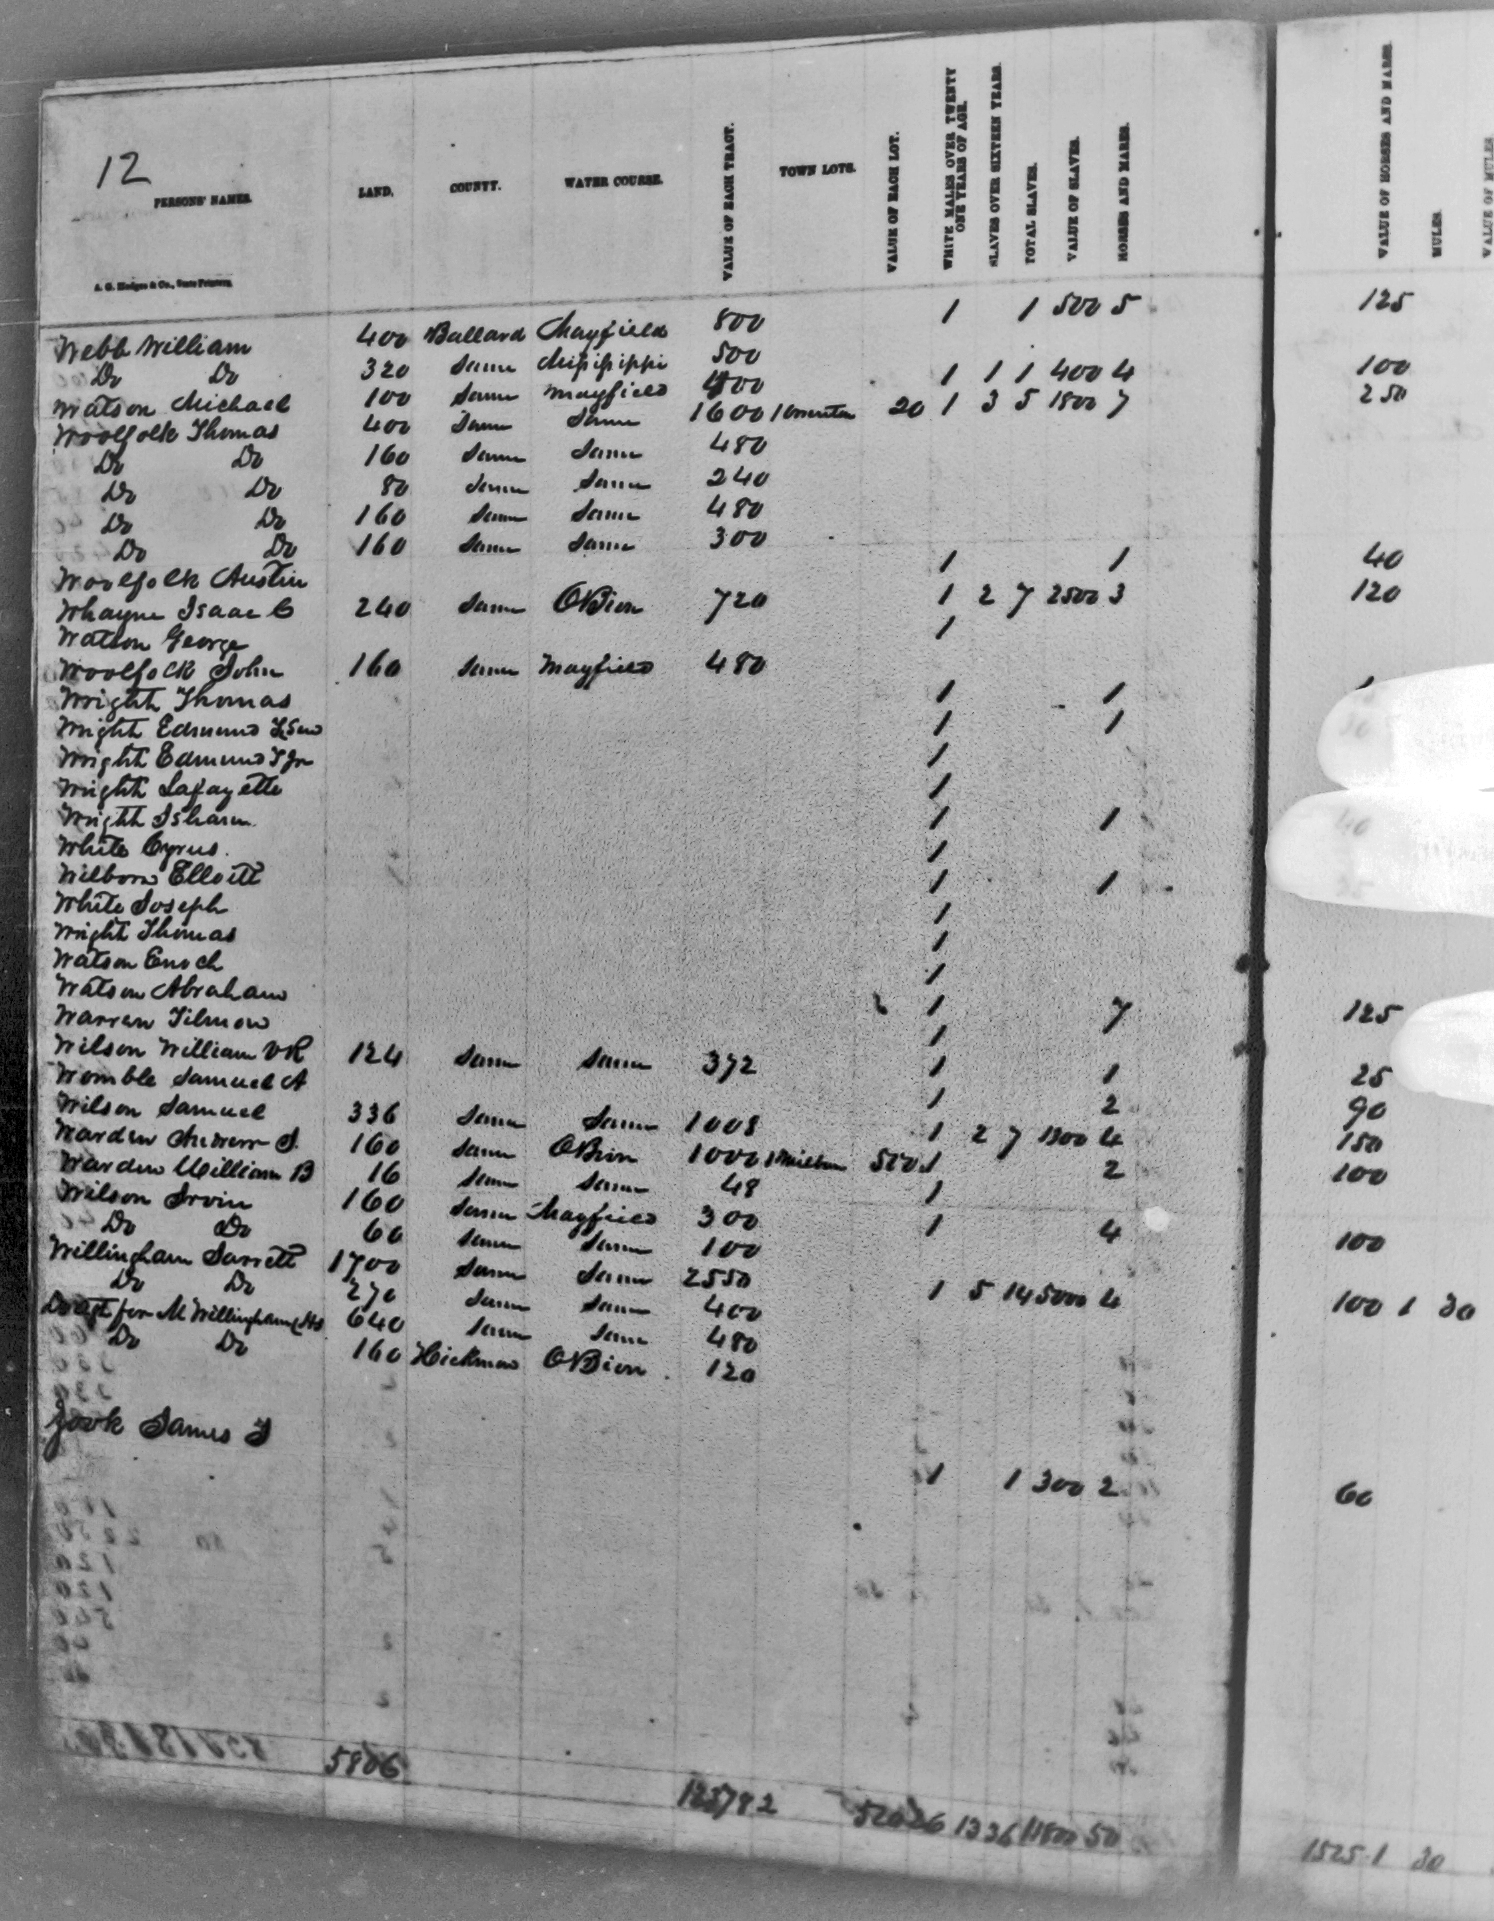 12
PERSONS' NAMES. LAND. COUNTY. WATER COURSE. VALUE OF EACH TRACT. TOWN LOTS. VALUE OF EACH LOT. WHITE MALES OVER TWENTY ONE YEARS OF AGE. SLAVES OVER SIXTEEN YEARS. TOTAL SLAVES. VALUE OF SLAVES. HORSES AND MARES. VALUE OF HORSES AND MARES. MULES. VALUE OF MULES
A. G. Hodges & Co., State Printers,
Webb William 400 Ballard Mayfield 800 1 1 500 5 125
Do Do 320 Same Mississippi 500
Watson Michael 100 Same Mayfield 400 1 1 1 400 4 100
Woolfolk Thomas 400 Same Same 1600 1 20 1 3 5 1800 7 250
Do Do 160 Same Same 480
Do Do 80 Same Same 240
Do Do 160 Same Same 480
Do Do 160 Same Same 300
Woolfolk Austin 1 1 40
Whayne Isaac C 240 Same OBion 720 1 2 7 2500 3 120
Watson George 1
Woolfolk John 160 Same Mayfield 480
Wright Thomas 1 1
Wright Edmund T Senr 1 1
Wright Edmund T Jr 1
Wright Lafayette 1
Wright Isham 1 1 40
White Cyrus 1
Wilborn Elloitt 1 1 35
White Joseph 1
Wright Thomas 1
Watson Enoch 1
Watson Abraham 1 7 125
Warren Tilmon 1
Wilson William VR 124 Same Same 372 1 1 25
Womble Samuel A 1 2 90
Wilson Samuel 336 Same Same 1008 1 2 7 1300 4 150
Warden Andrew J. 160 Same OBion 1000 1 Milburn 500 1 2 100
Warden William B 16 Same Same 48 1
Wilson Irvin 160 Same Mayfield 300 1 4 100
Do Do 60 Same Same 100
Willingham Jarrett 1700 Same Same 2550 1 5 14 5000 4 100 1 30
Do Do 270 Same Same 400
Do agt for M Willingham 640 Same Same 480
Do Do 160 Hickman OBion 120
Zook James T 1 1 300 2 60
5806 12 36 11800 50 1525 1 30